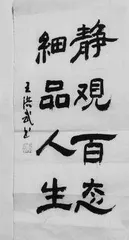 静观百态
细品人生
王浩武书